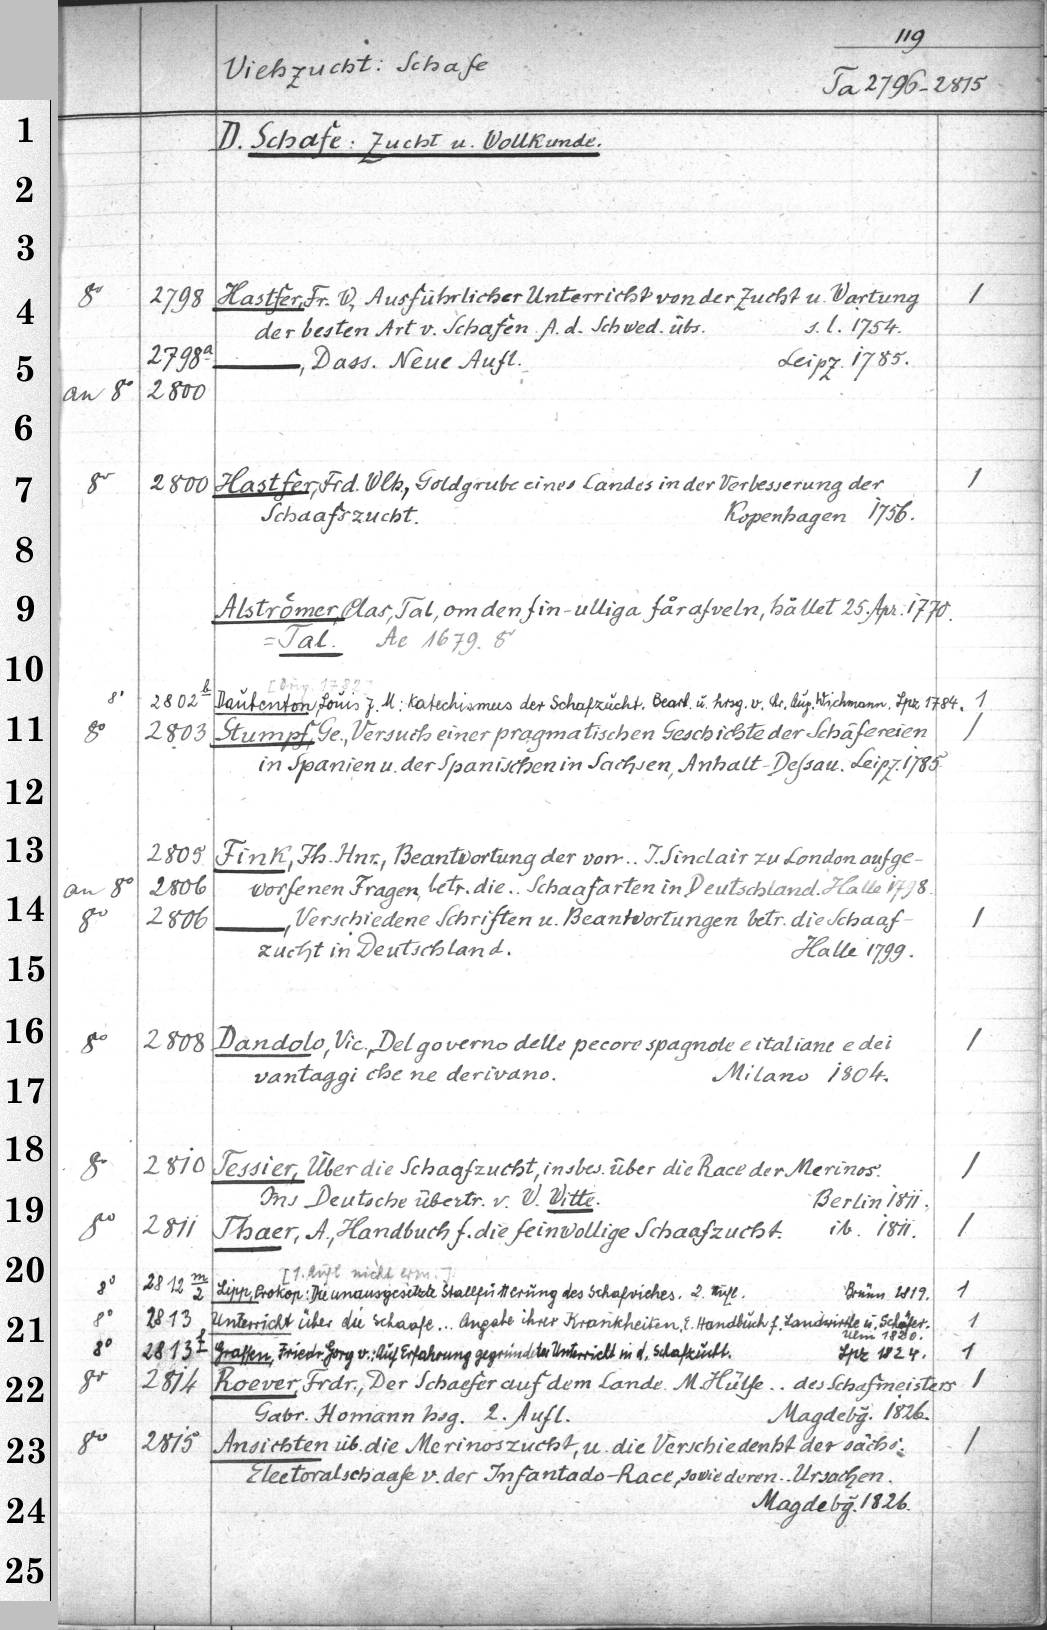 119
Viehzucht: Schafe
Ta 2796-2815
1
D. Schafe: Zucht u. Wollkunde.
2
3
8° 2798 Hastfer, Fr. W., Ausführlicher Unterricht von der Zucht u. Wartung 1
4
der besten Art v. Schafen A. d. Schwed. übs. s. l. 1754.
5
2798a ———, Dass. Neue Aufl. Leipz. 1785.
an 8° 2800
6
7
8° 2800 Hastfer, Frd. Wlh., Goldgrube eines Landes in der Verbesserung der 1
Schaafszucht. Kopenhagen 1756.
8
9
Alströmer, Clas, Tal, om den fin-ulliga fårafveln, hållet 25. Apr. 1770.
= Tal. Ae 1679. 8°
10
8° 2802b Daubenton, Louis J. M: Katechismus der Schafzucht. Bearb. u. hrsg. v. Chr. Aug. Wichmann. Lpz 1784. 1
11
8° 2803 Stumpf, Ge., Versuch einer pragmatischen Geschichte der Schäfereien 1
in Spanien u. der Spanischen in Sachsen, Anhalt-Deßau. Leipz. 1785
12
13
2805 Fink, Jh. Hnr., Beantwortung der von .. J. Sinclair zu London aufge-
an 8° 2806 worfenen Fragen, betr. die .. Schaafarten in Deutschland. Halle 1798.
14
8° 2806 ———, Verschiedene Schriften u. Beantwortungen betr. die Schaaf- 1
zucht in Deutschland. Halle 1799.
15
16
8° 2808 Dandolo, Vic., Del governo delle pecore spagnole e italiane e dei 1
17
vantaggi che ne derivano. Milano 1804.
18
8° 2810 Tessier, Über die Schaafzucht, insbes. über die Race der Merinos. 1
Ins Deutsche übertr. v. W. Witte. Berlin 1811.
19
8° 2811 Thaer, A., Handbuch f. die feinwollige Schaafzucht. ib. 1811. 1
20
[1. Aufl. nicht erm.]
8° 2812 m/2 Lipp, Prokop: Die unausgesetzte Stallfütterung des Schafviches. 2. Aufl. Brünn 1819. 1
21
8° 2813 Unterricht über die Schaafe ... Angabe ihrer Krankheiten, e. Handbuch f. Landwirthe u. Schäfer. 1
Ulm 1820.
8° 2813f Graffen, Friedr. Georg v.: Auf Erfahrung gegründeter Unterricht in d. Schafzucht. Lpz 1824. 1
22
8° 2814 Roever, Frdr., Der Schaefer auf dem Lande. M. Hülfe .. des Schafmeisters 1
Gabr. Homann hsg. 2. Aufl. Magdebg. 1826.
23
8° 2815 Ansichten üb. die Merinoszucht, u. die Verschiedenht der sächs. 1
Electoralschaafe v. der Infantado-Race, sowie deren .. Ursachen.
24
Magdebg. 1826.
25